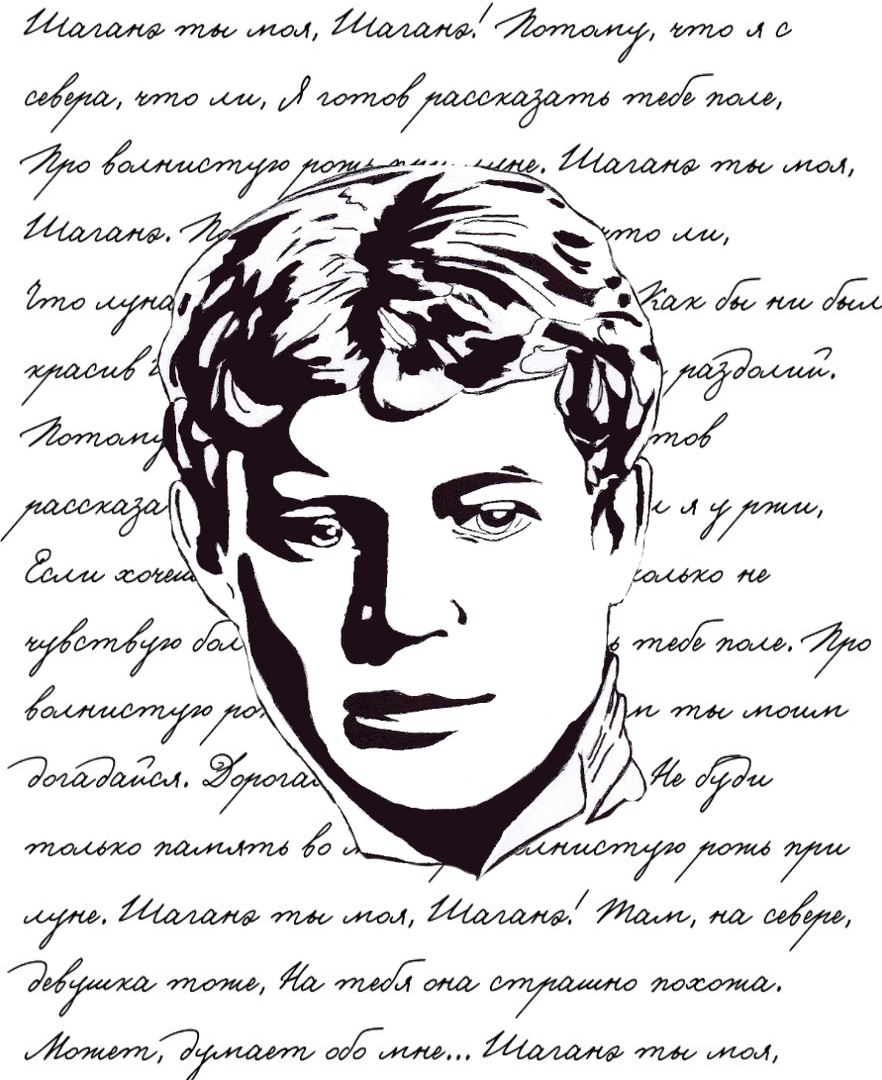 Шаганэ ты моя, Шаганэ! Потому, что я с
севера, что ли, Я готов рассказать тебе поле,
Про волнистую рожь при луне. Шаганэ ты моя,
Шаганэ. что ли,
Что луна Как бы ни был
красив раздолий.
Потому
рассказа я у ржи,
Если хочеш не
чувствую бол тебе поле. Про
волнистую ты моим
догадайся. Дорогая Не буди
только память во при
луне. Шаганэ ты моя, Шаганэ! Там, на севере,
девушка тоже, На тебя она страшно похожа.
Может, думает обо мне... Шаганэ ты моя,